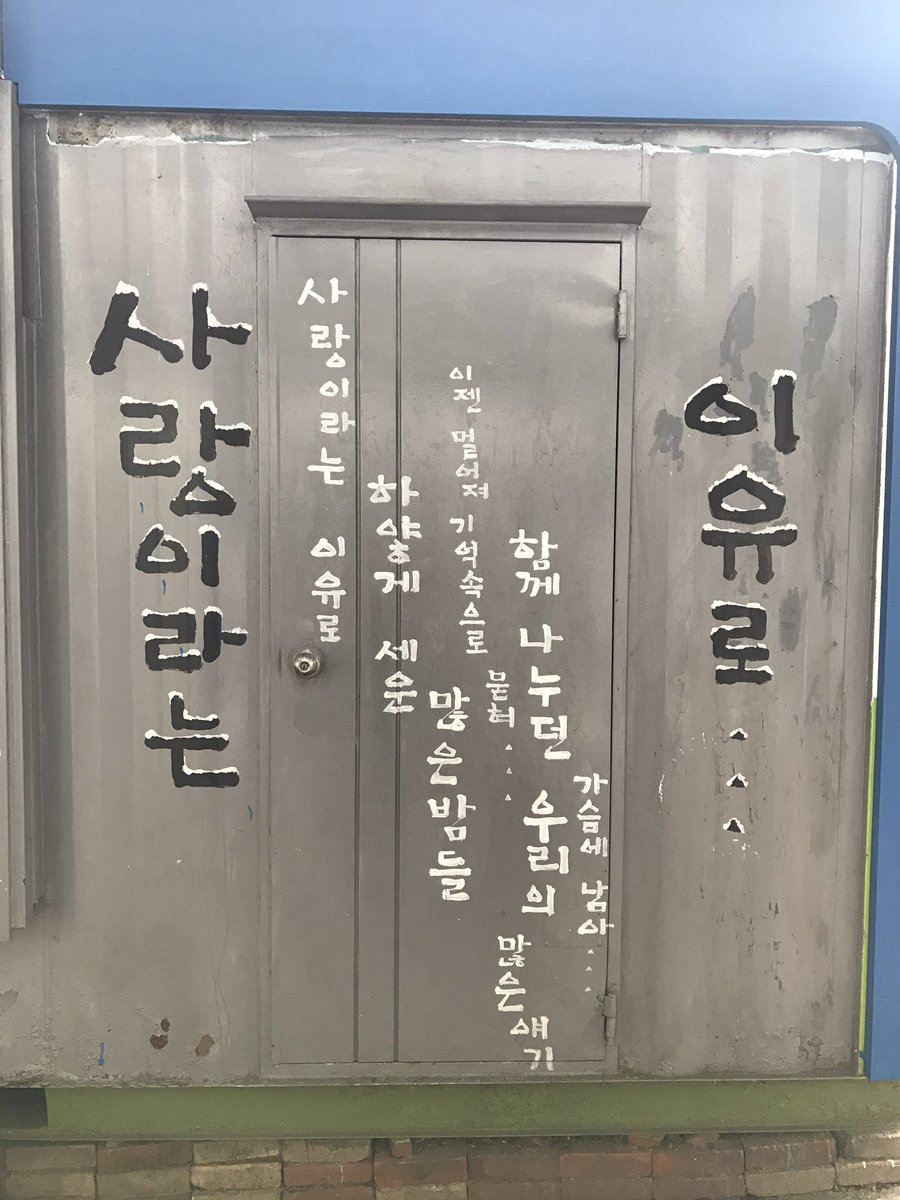 사랑이라는
이유로...
사랑이라는 이유로
하얗게 세운
많은밤들
이젠 멀어져 기억속으로
묻혀...
함께 나누던 우리의
많은 얘기
가슴에 남아...